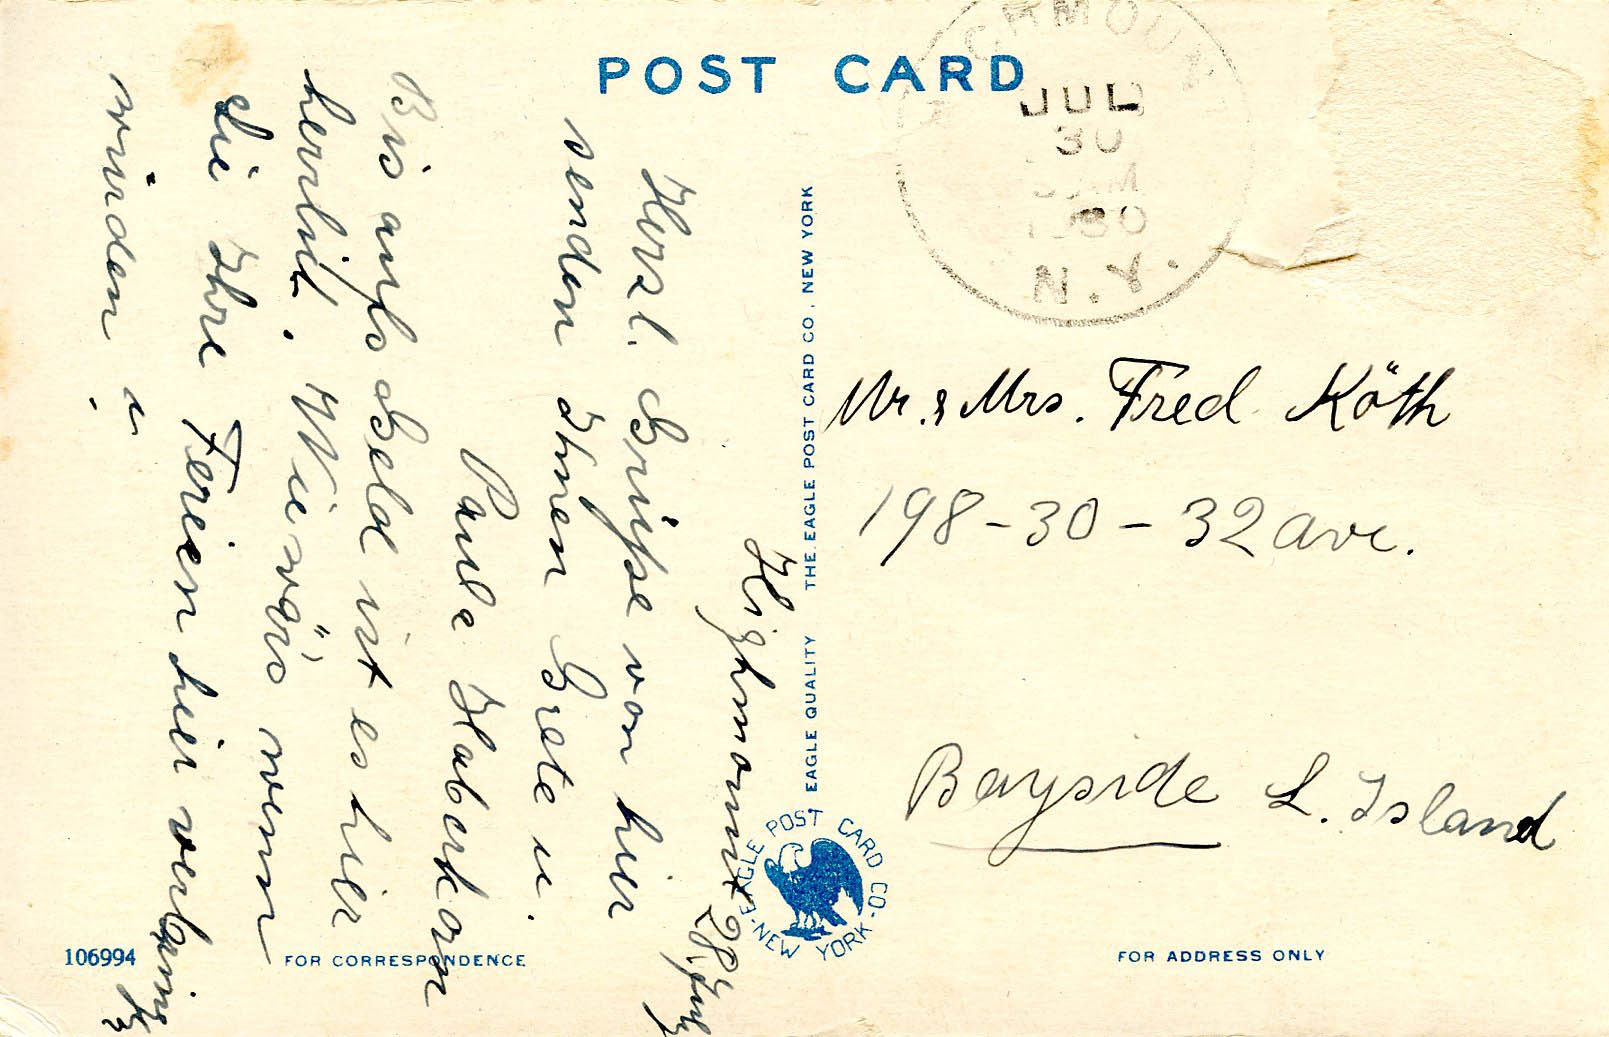 POST CARD
HIGHMOUNT
JUL
30
AM
1930
N.Y.
Highmount 28. July
Herzl. Grüsse von hier
senden Ihnen Grete u.
Paula Haberkorn
Bis aufs Geld ist es hier
herrlich. Wie wär's wenn
Sie Ihre Ferien hier verbringen
würden ?
Mr. & Mrs. Fred Köth
198-30-32 ave.
Bayside L. Island
EAGLE QUALITY THE EAGLE POST CARD CO., NEW YORK
EAGLE POST CARD CO - NEW YORK -
106994
FOR CORRESPONDENCE
FOR ADDRESS ONLY